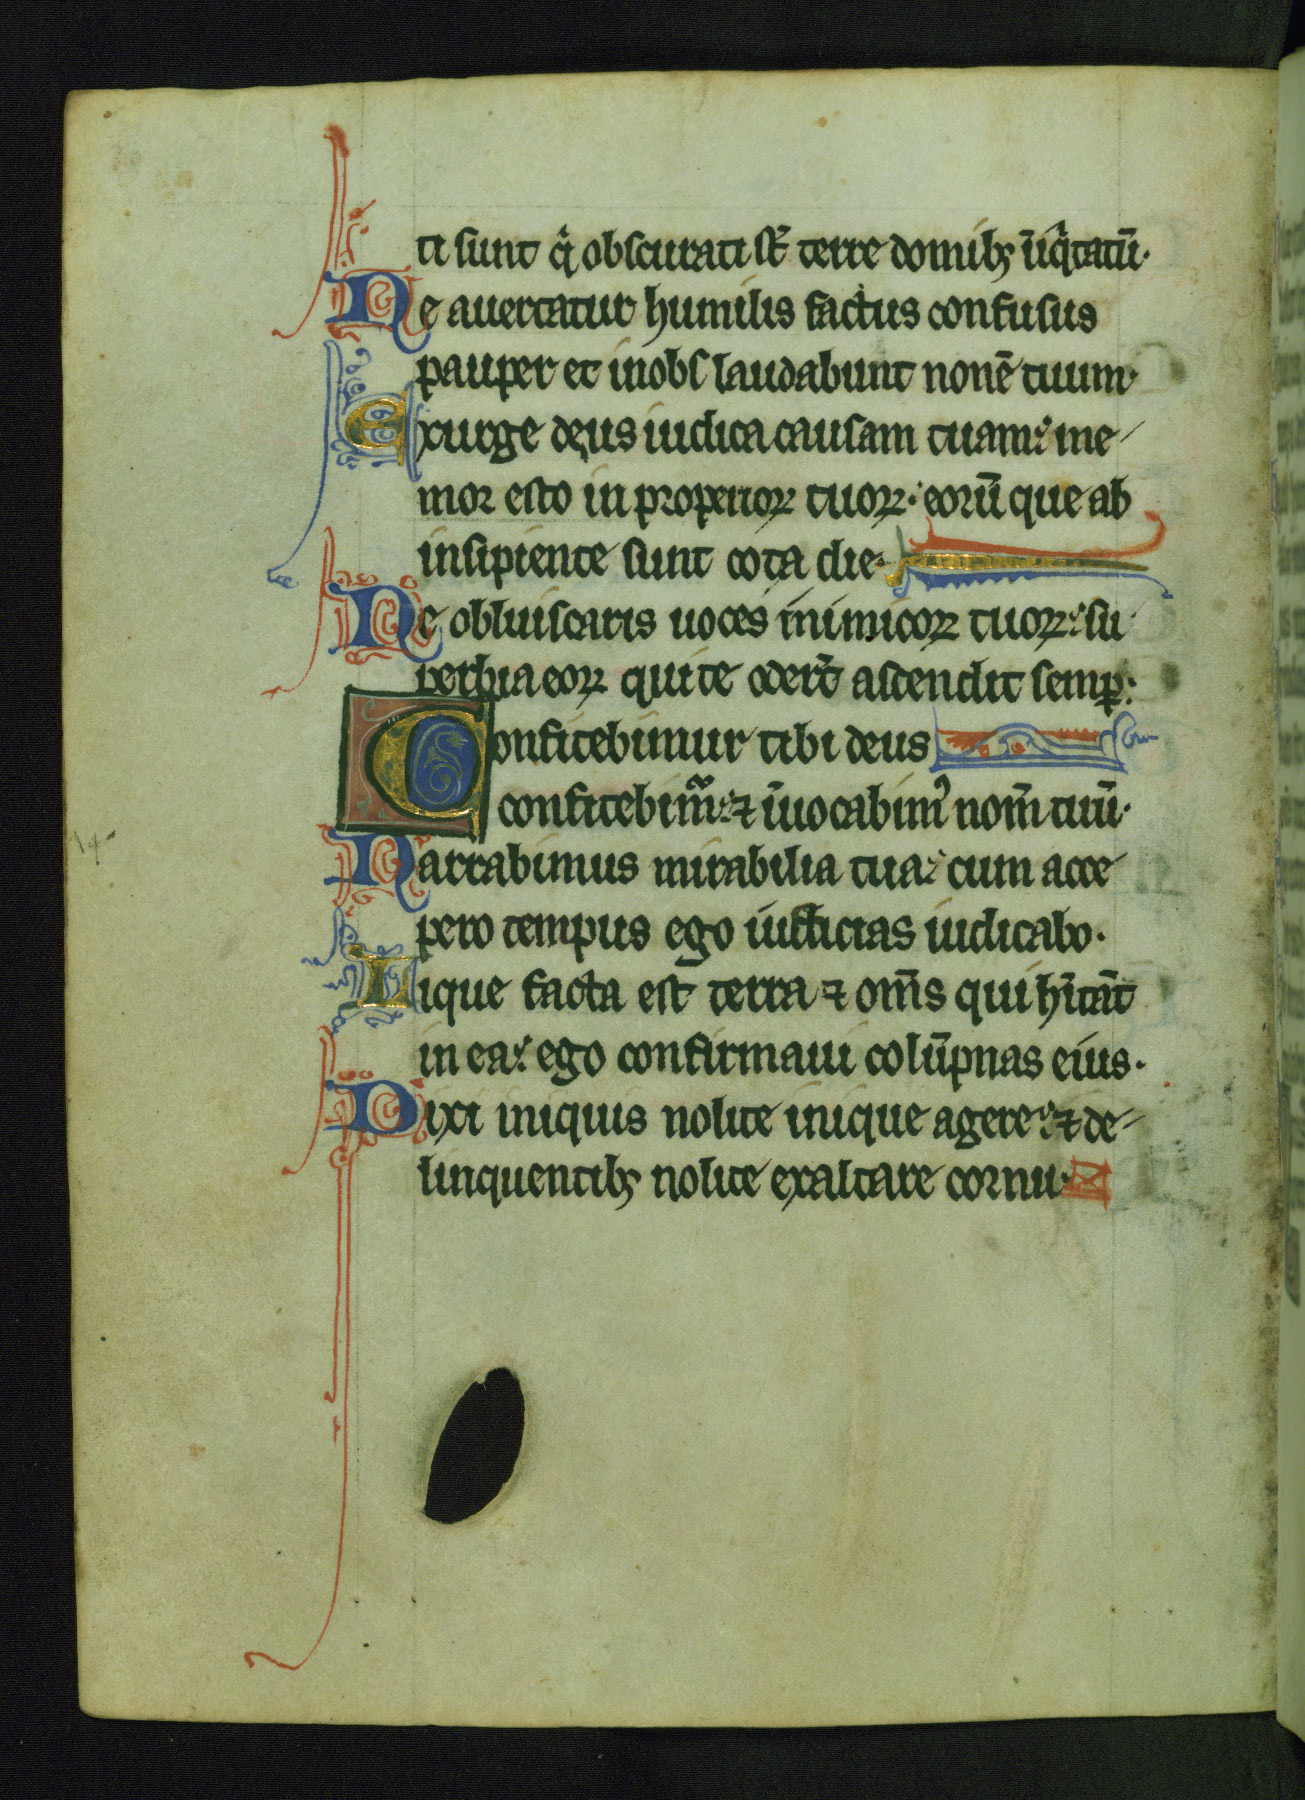 ti sunt qͥ obscurati st̄ terre domibꝫ iīqͥtatū·
Ne auertatur humilis factus confusus
pauper et inobs laudabunt nonē tuum·
Exurge deus iudica causam tuam: me
mor esto in properioꝝ tuoꝝ· eorū que ab
insipiente sunt tota die·
Ne obliuiscaris uoces inimicoꝝ tuoꝝ: su
perbia eoꝝ qui te oder̄t ascendit semꝑ:
Confitebimur tibi deus
confitebimᷓ: ⁊ īuocabimꝰ nom̄ tuū·
Narrabimus mirabilia tua: cum acce
pero tempus ego iusticias iudicabo·
Lique facta est terra ⁊ om̄s qui hītāt
in ea: ego confirmaui colūpnas eius·
Dixi iniquis nolite inique agere: ⁊ de
linquentibꝫ nolite exaltare cornu·